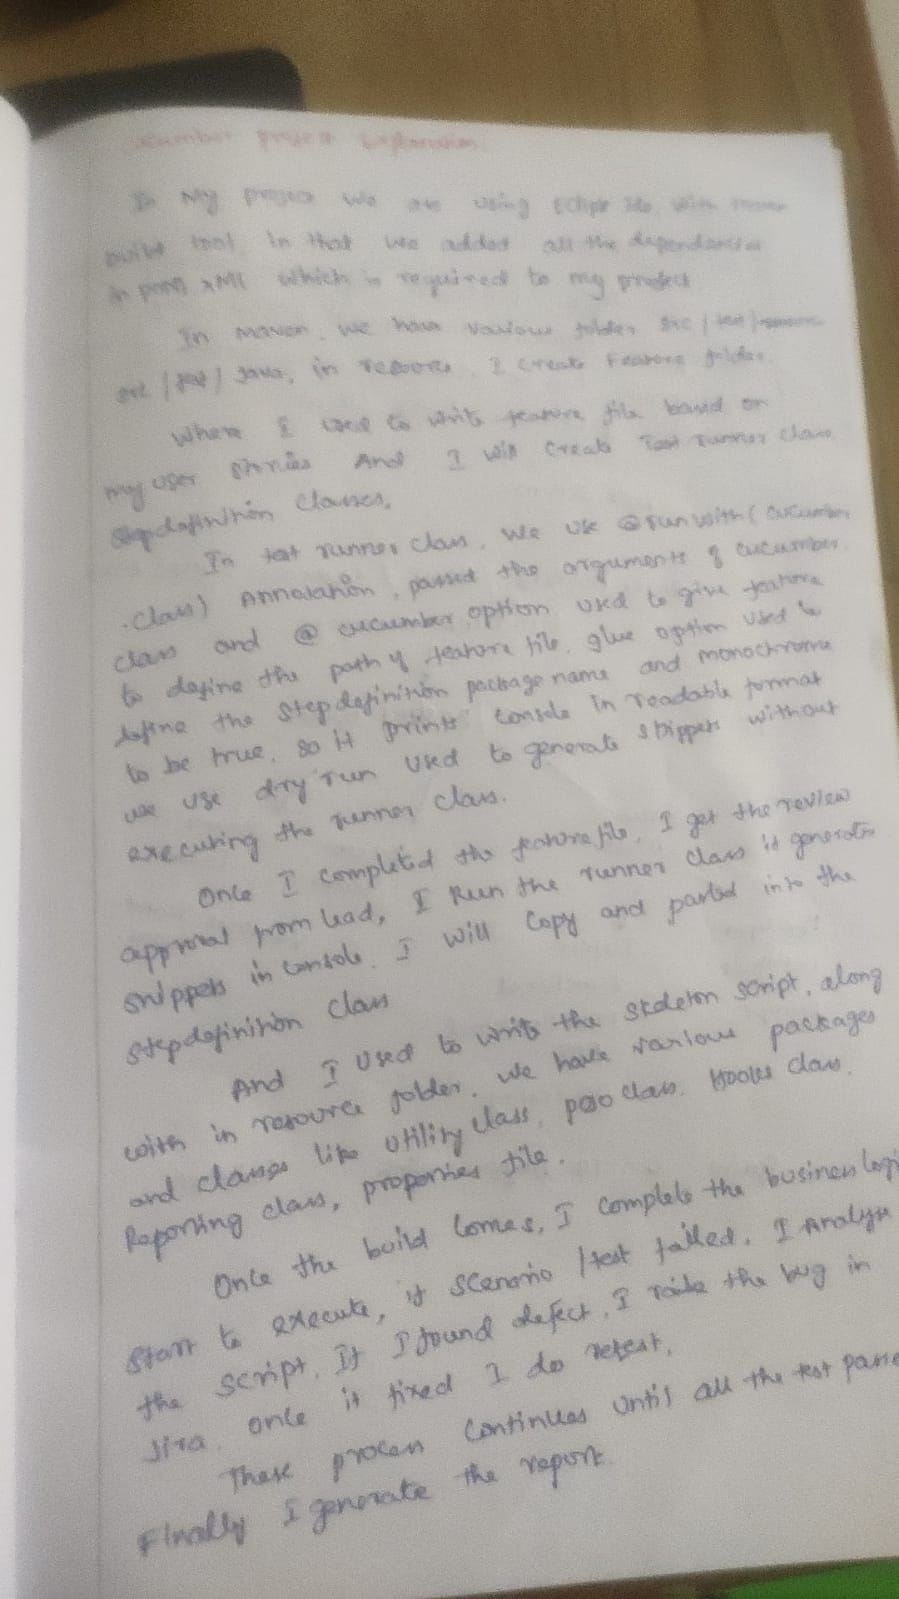 Cucumber project Explanation
In My project we are using Eclipse Ide with maven
build tool in that we added all the dependencies
in pom xml which is required to my project
In maven, we have various folder src / test /
src / test / Java, in resource, I create Feature folder.
Where I used to write feature file based on
my user stories And I will create Test runner class
Stepdefinition Classes.
In test runner class, we use @runwith ( cucumber
.class) Annotation, passed the arguments of cucumber
class and @ cucumber option used to give feature
to define the path of feature file, glue option used to
define the stepdefinition package name and monochrome
to be true, so it prints console in readable format
we use dry run used to generate snippets without
executing the runner class.
Once I completed the feature file, I get the review
approval from lead, I Run the runner class it generate
snippets in console. I will copy and pasted into the
stepdefinition class
And I used to write the skeleton script, along
with in resource folder, we have various packages
and classes like utility class, pojo class, Hooks class,
Reporting class, properties file.
Once the build comes, I complete the business logi
start to execute, if scenario / test failed. I Analyse
the script. If I found defect, I raise the bug in
Jira. once it fixed I do retest.
These process continues until all the test passe
Finally I generate the report.